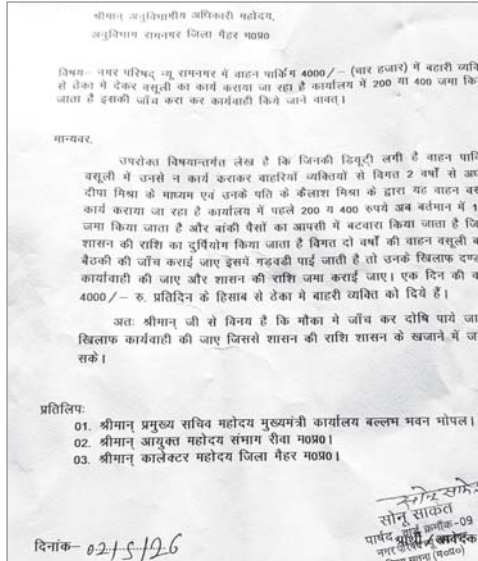 श्रीमान् अनुविभागीय अधिकारी महोदय,
अनुविभाग रामनगर जिला मैहर म0प्र0
विषय– नगर परिषद् न्यू रामनगर में वाहन पार्किंग 4000/– (चार हजार) में बहारी व्यक्ति
से ठेका मे देकर वसूली का कार्य कराया जा रहा है कार्यालय में 200 या 400 जमा किया
जाता है इसकी जॉच करा कर कार्यवाही किये जाने वावत्।
मान्यवर,
उपरोक्त विषयान्तर्गत लेख है कि जिनकी डियूटी लगी है वाहन पार्कि
वसूली में उनसे न कार्य कराकर बाहरियों व्यक्तियों से विगत 2 वर्षो से अध
दीपा मिश्रा के माध्यम एवं उनके पति के कैलाश मिश्रा के द्वारा यह वाहन वस
कार्य कराया जा रहा है कार्यालय में पहले 200 य 400 रुपये अब वर्तमान में 1
जमा किया जाता है और बांकी पैसों का आपसी में बटवारा किया जाता है जि
शासन की राशि का दुर्पियोग किया जाता है विगत दो वर्षों की वाहन वसूली क
बैठकी की जॉच कराई जाए इसमें गड़वडी पाई जाती है तो उनके खिलाफ दण्ड
कार्यावाही की जाए और शासन की राशि जमा कराई जाए। एक दिन की व
4000/– रु. प्रतिदिन के हिसाब से ठेका मे बाहरी व्यक्ति को दिये हैं।
अतः श्रीमान् जी से विनय है कि मौका मे जॉच कर दोषि पाये जा
खिलाफ कार्यवाही की जाए जिससे शासन की राशि शासन के खजाने में ज
सके।
प्रतिलिपः
01. श्रीमान् प्रमुख्य सचिव महोदय मुख्यमंत्री कार्यालय बल्लम भवन भोपल।
02. श्रीमान् आयुक्त महोदय संभाग रीवा म0प्र0।
03. श्रीमान् कालेक्टर महोदय जिला मैहर म0प्र0।
सोनू साकेत
सोनू साकेत
पार्षद वार्ड क्रमाँक–09
प्रार्थी/आवेदक
नगर परिषद न्यू
सतना (म0प्र0)
दिनांक– 02/5/26